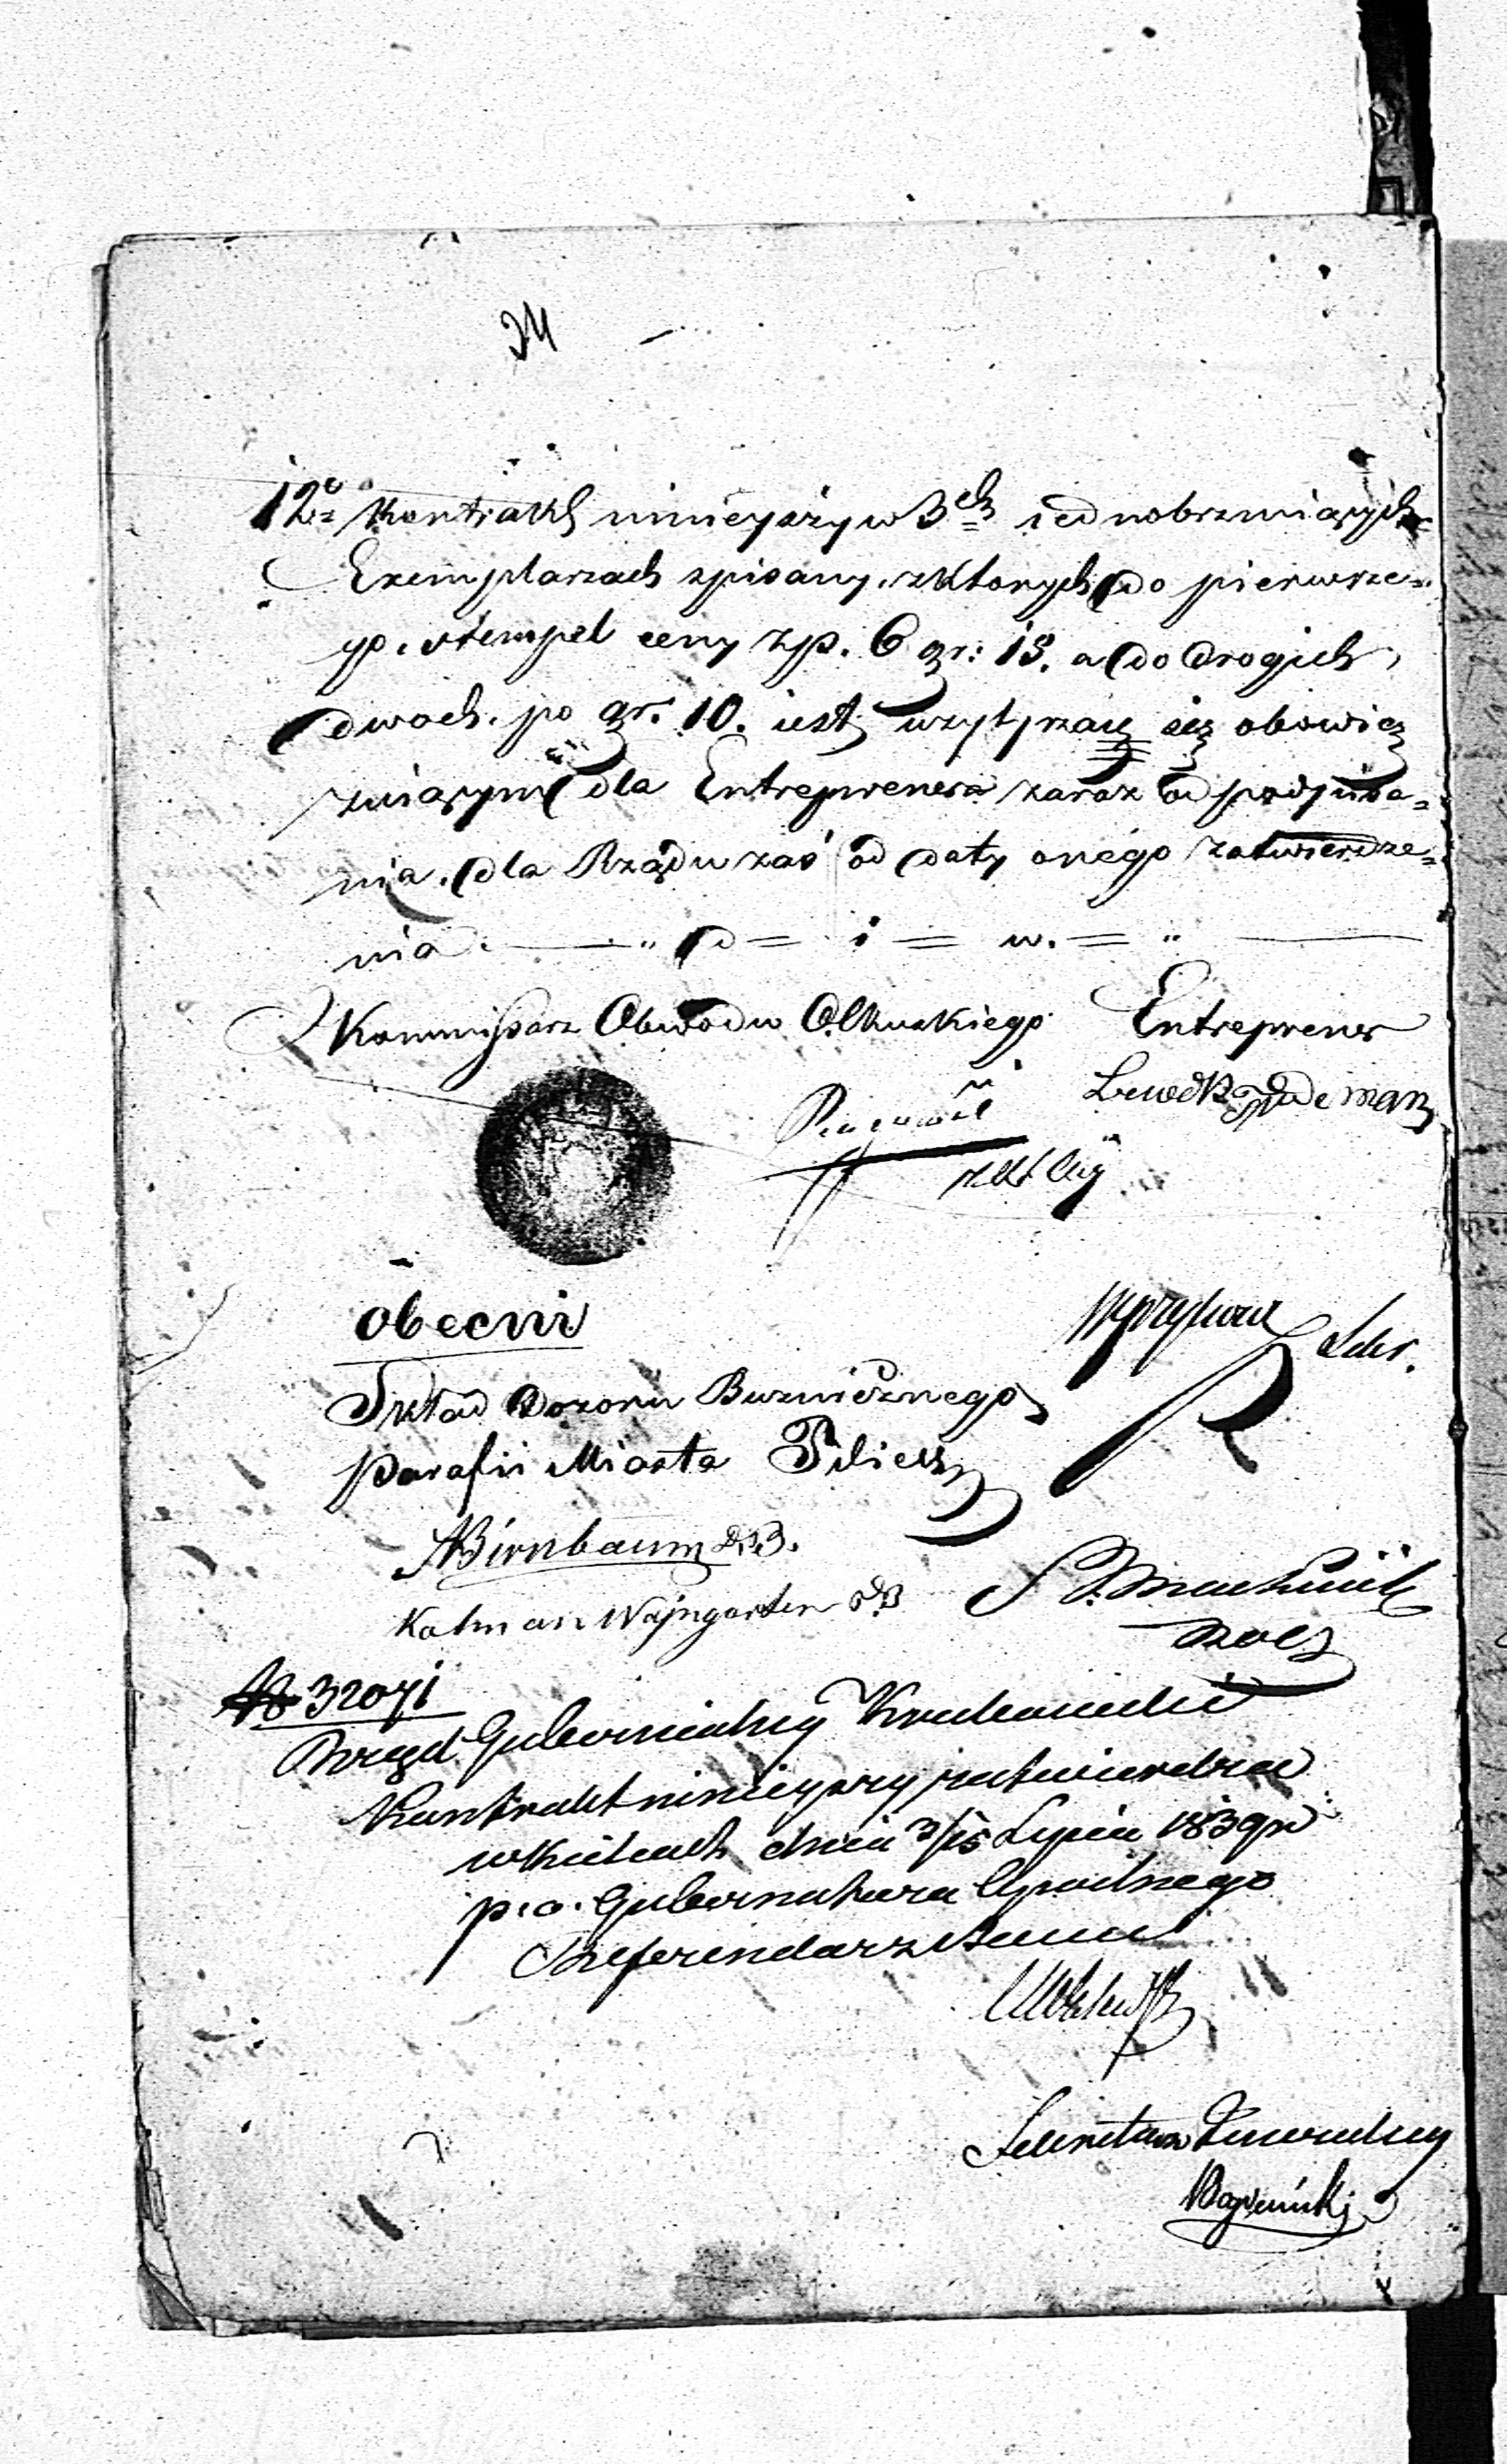 24
12o Kontrakt ninieyszy w 3ch iednobrzmiących
Exemplarzach spisany, z ktorych do pierwsze=
go, stempel ceny zp. 6 gr: 18. a do drogich
dwoch. po gr. 10. iest obowię
zuiącym dla Entreprenera zaraz od podpisa=
nia, dla Rządu zaś od daty onégo zatwierdze=
nia. — " d = i = w. = " —
Kommissarz Obwodu Olkuskiego Entreprener
Lewek
obecni
Sekr.
Skład Dozoru Buznicznego
Parafii Miasta Pilicy
ABirnbaum DB.
Kalman Wajngarten DB
№ 32071
Rząd Gubernialny Krakowski
Kontrakt ninieyszy zatwierdza
w Kielcach dnia 3/15 Lipca 1839 r
p. o. Gubernatora Cywilnego
Referendarz Stanu
Sekretarz Generalny